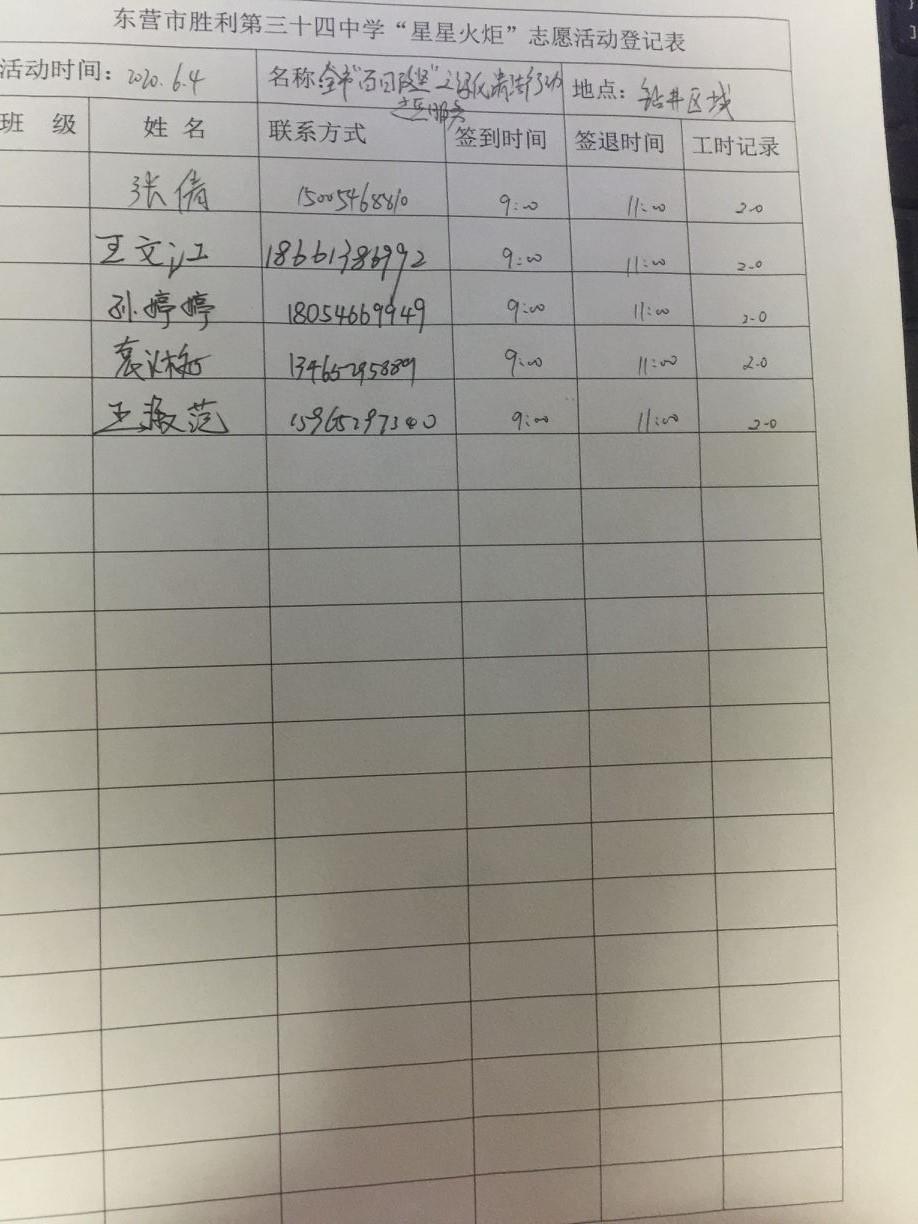 东营市胜利第三十四中学“星星火炬”志愿活动登记表
活动时间：2020.6.4 名称 全市“百日攻坚” 清洁行动 地点：钻井区域
志愿服务
班 级 姓 名 联系方式 签到时间 签退时间 工时记录
张倩 15005468810 9:00 11:00 2.0
王文江 18661386992 9:00 11:00 2.0
孙婷婷 18054669949 9:00 11:00 2.0
袁 13465295889 9:00 11:00 2.0
王淑范 15965297340 9:00 11:00 2.0